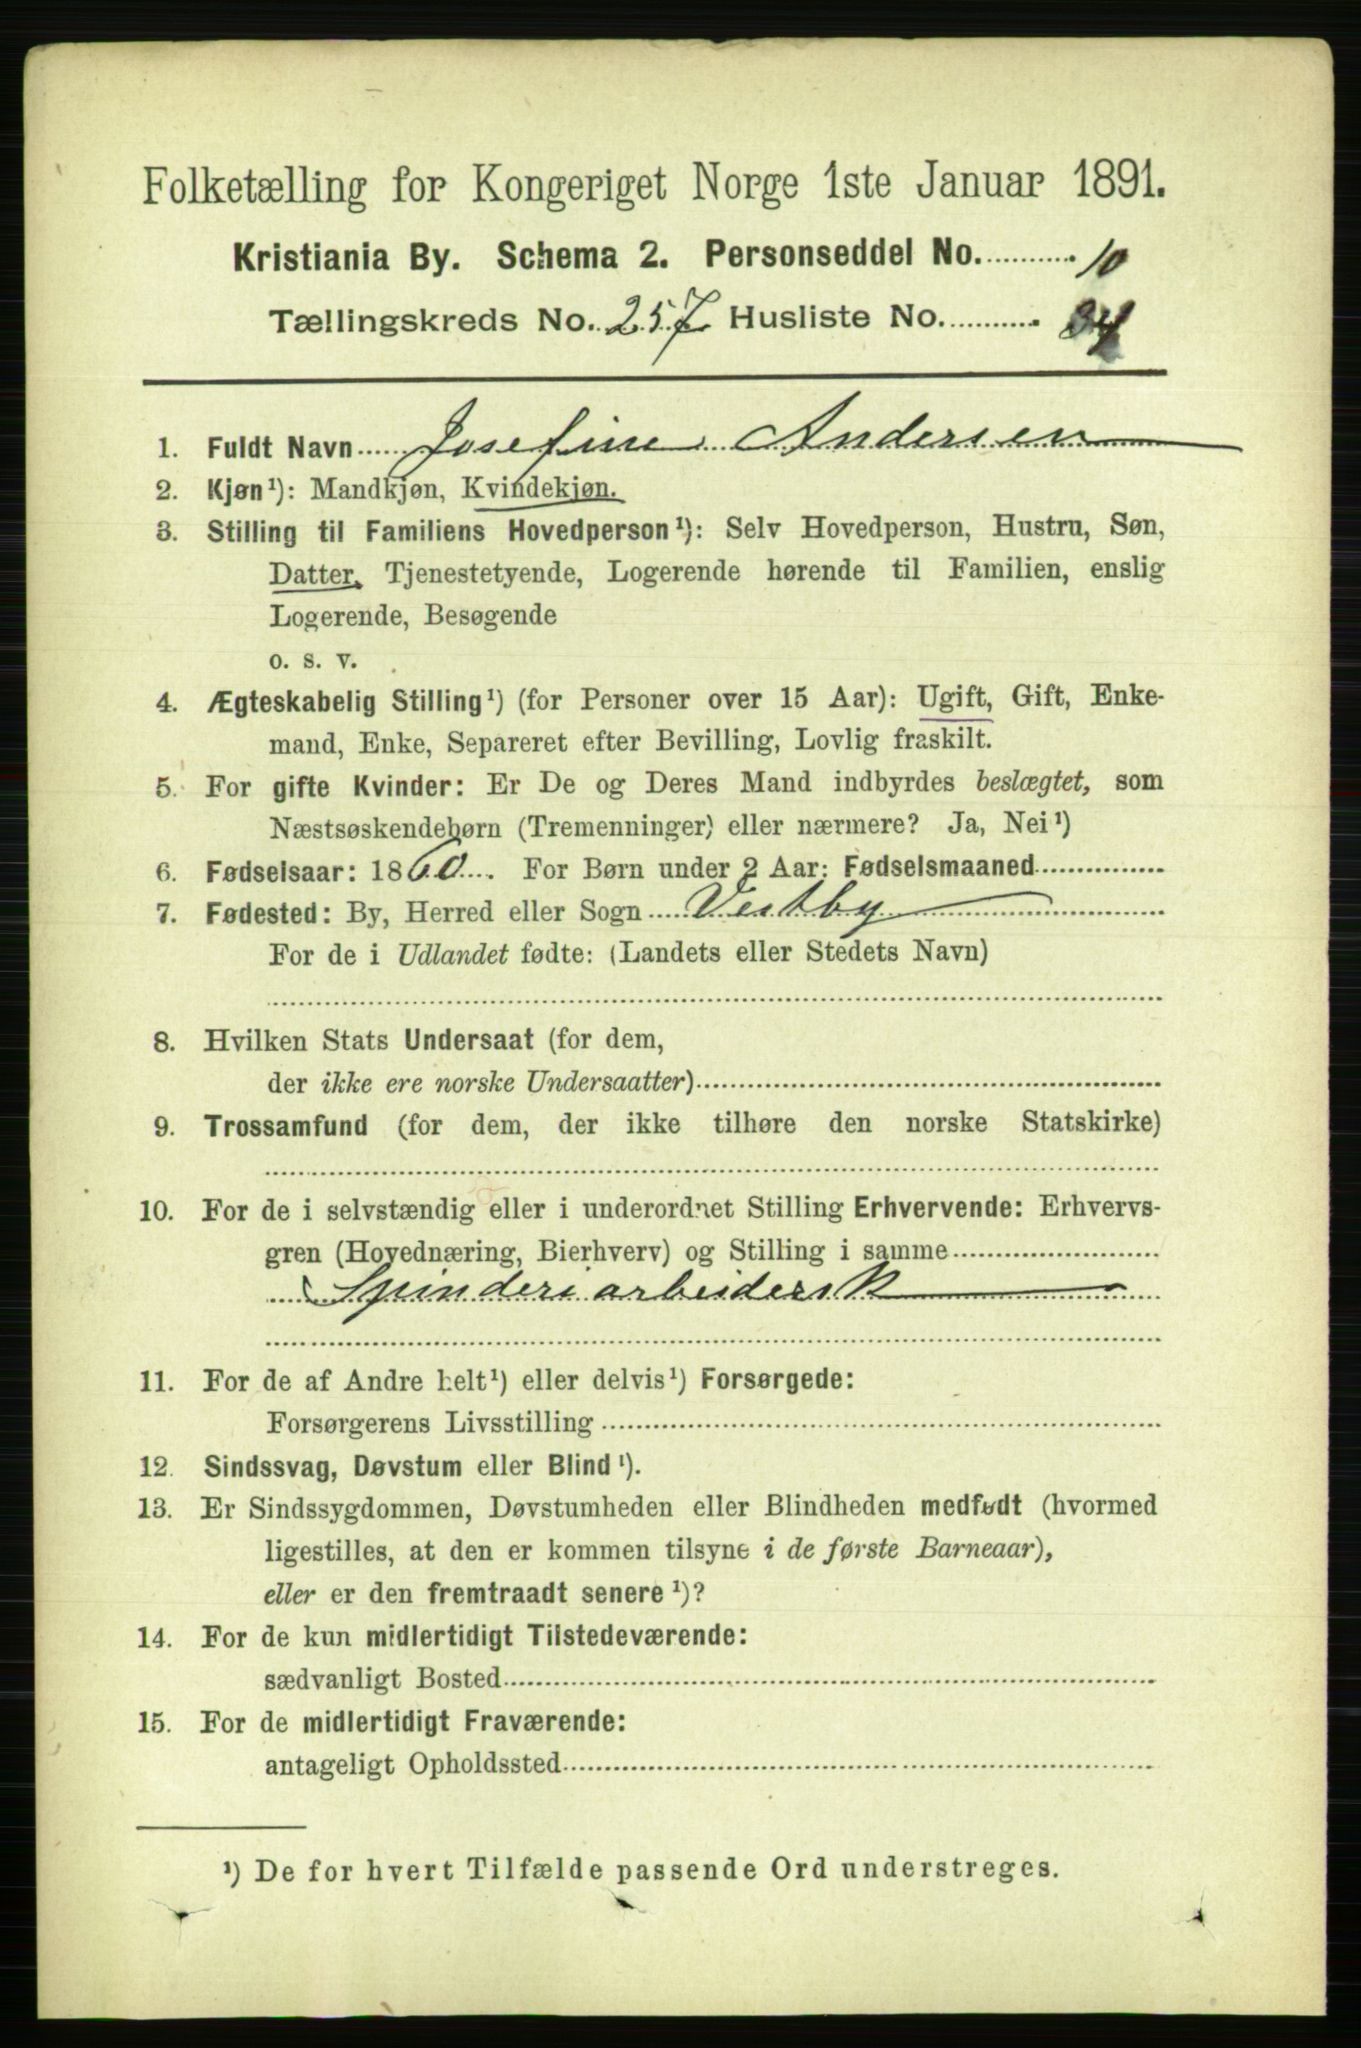 Folketælling for Kongeriget Norge 1ste Januar 1891.
Kristiania By. Schema 2. Personseddel No. 10
Tællingskreds No. 257 Husliste No. 34
1. Fuldt Navn Josefine Andersen
2. Kjøn¹): Mandkjøn, Kvindekjøn.
3. Stilling til Familiens Hovedperson¹): Selv Hovedperson, Hustru, Søn,
Datter, Tjenestetyende, Logerende hørende til Familien, enslig
Logerende, Besøgende
o. s. v.
4. Ægteskabelig Stilling¹) (for Personer over 15 Aar): Ugift, Gift, Enke-
mand, Enke, Separeret efter Bevilling, Lovlig fraskilt.
5. For gifte Kvinder: Er De og Deres Mand indbyrdes beslægtet, som
Næstsøskendebørn (Tremenninger) eller nærmere? Ja, Nei¹)
6. Fødselsaar: 1860. For Børn under 2 Aar: Fødselsmaaned
7. Fødested: By, Herred eller Sogn Vestby
For de i Udlandet fødte: (Landets eller Stedets Navn)
8. Hvilken Stats Undersaat (for dem,
der ikke ere norske Undersaatter)
9. Trossamfund (for dem, der ikke tilhøre den norske Statskirke)
10. For de i selvstændig eller i underordnet Stilling Erhvervende: Erhvervs-
gren (Hovednæring, Bierhverv) og Stilling i samme
Spinderiarbeidersk
11. For de af Andre helt¹) eller delvis¹) Forsørgede:
Forsørgerens Livsstilling
12. Sindssvag, Døvstum eller Blind¹).
13. Er Sindssygdommen, Døvstumheden eller Blindheden medfødt (hvormed
ligestilles, at den er kommen tilsyne i de første Barneaar),
eller er den fremtraadt senere¹)?
14. For de kun midlertidigt Tilstedeværende:
sædvanligt Bosted
15. For de midlertidigt Fraværende:
antageligt Opholdssted
¹) De for hvert Tilfælde passende Ord understreges.